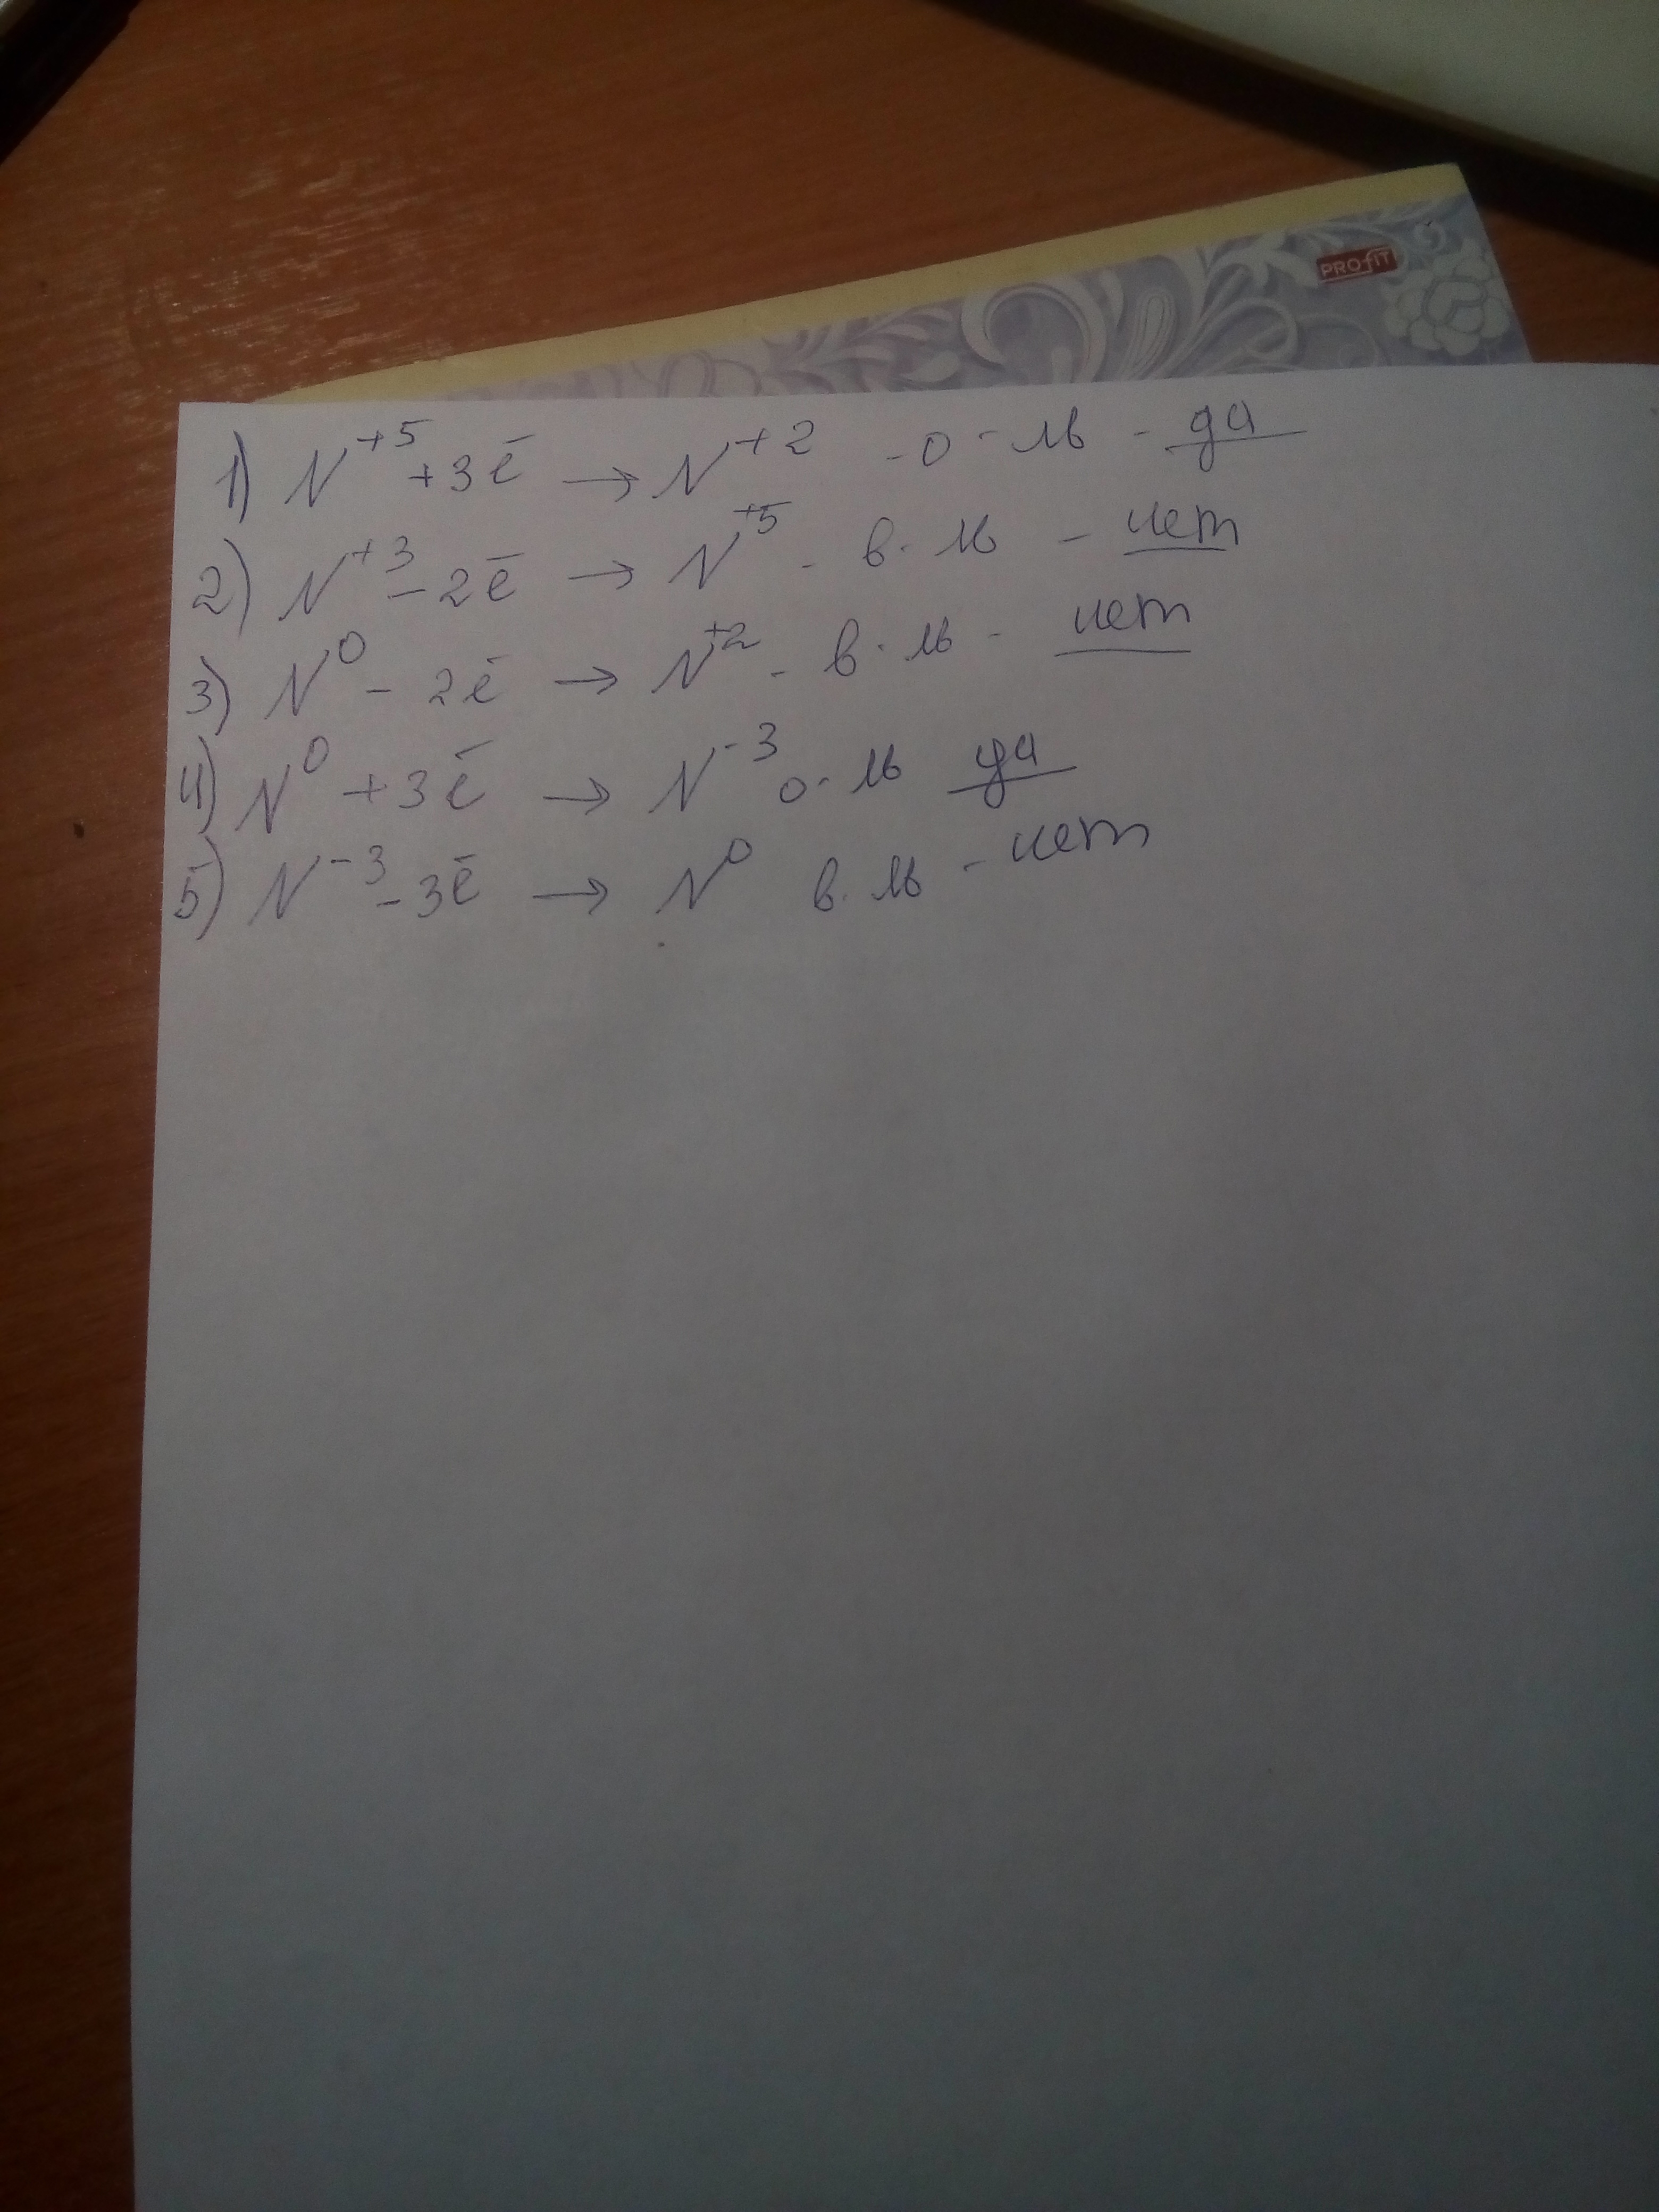 PROFIT
1) N⁺⁵ + 3ē → N⁺² - о-ль - да
2) N⁺³ - 2ē → N⁺⁵ - в-ль - нет
3) N⁰ - 2ē → N⁺² - в-ль - нет
4) N⁰ + 3ē → N⁻³ о-ль да
5) N⁻³ - 3ē → N⁰ в-ль - нет